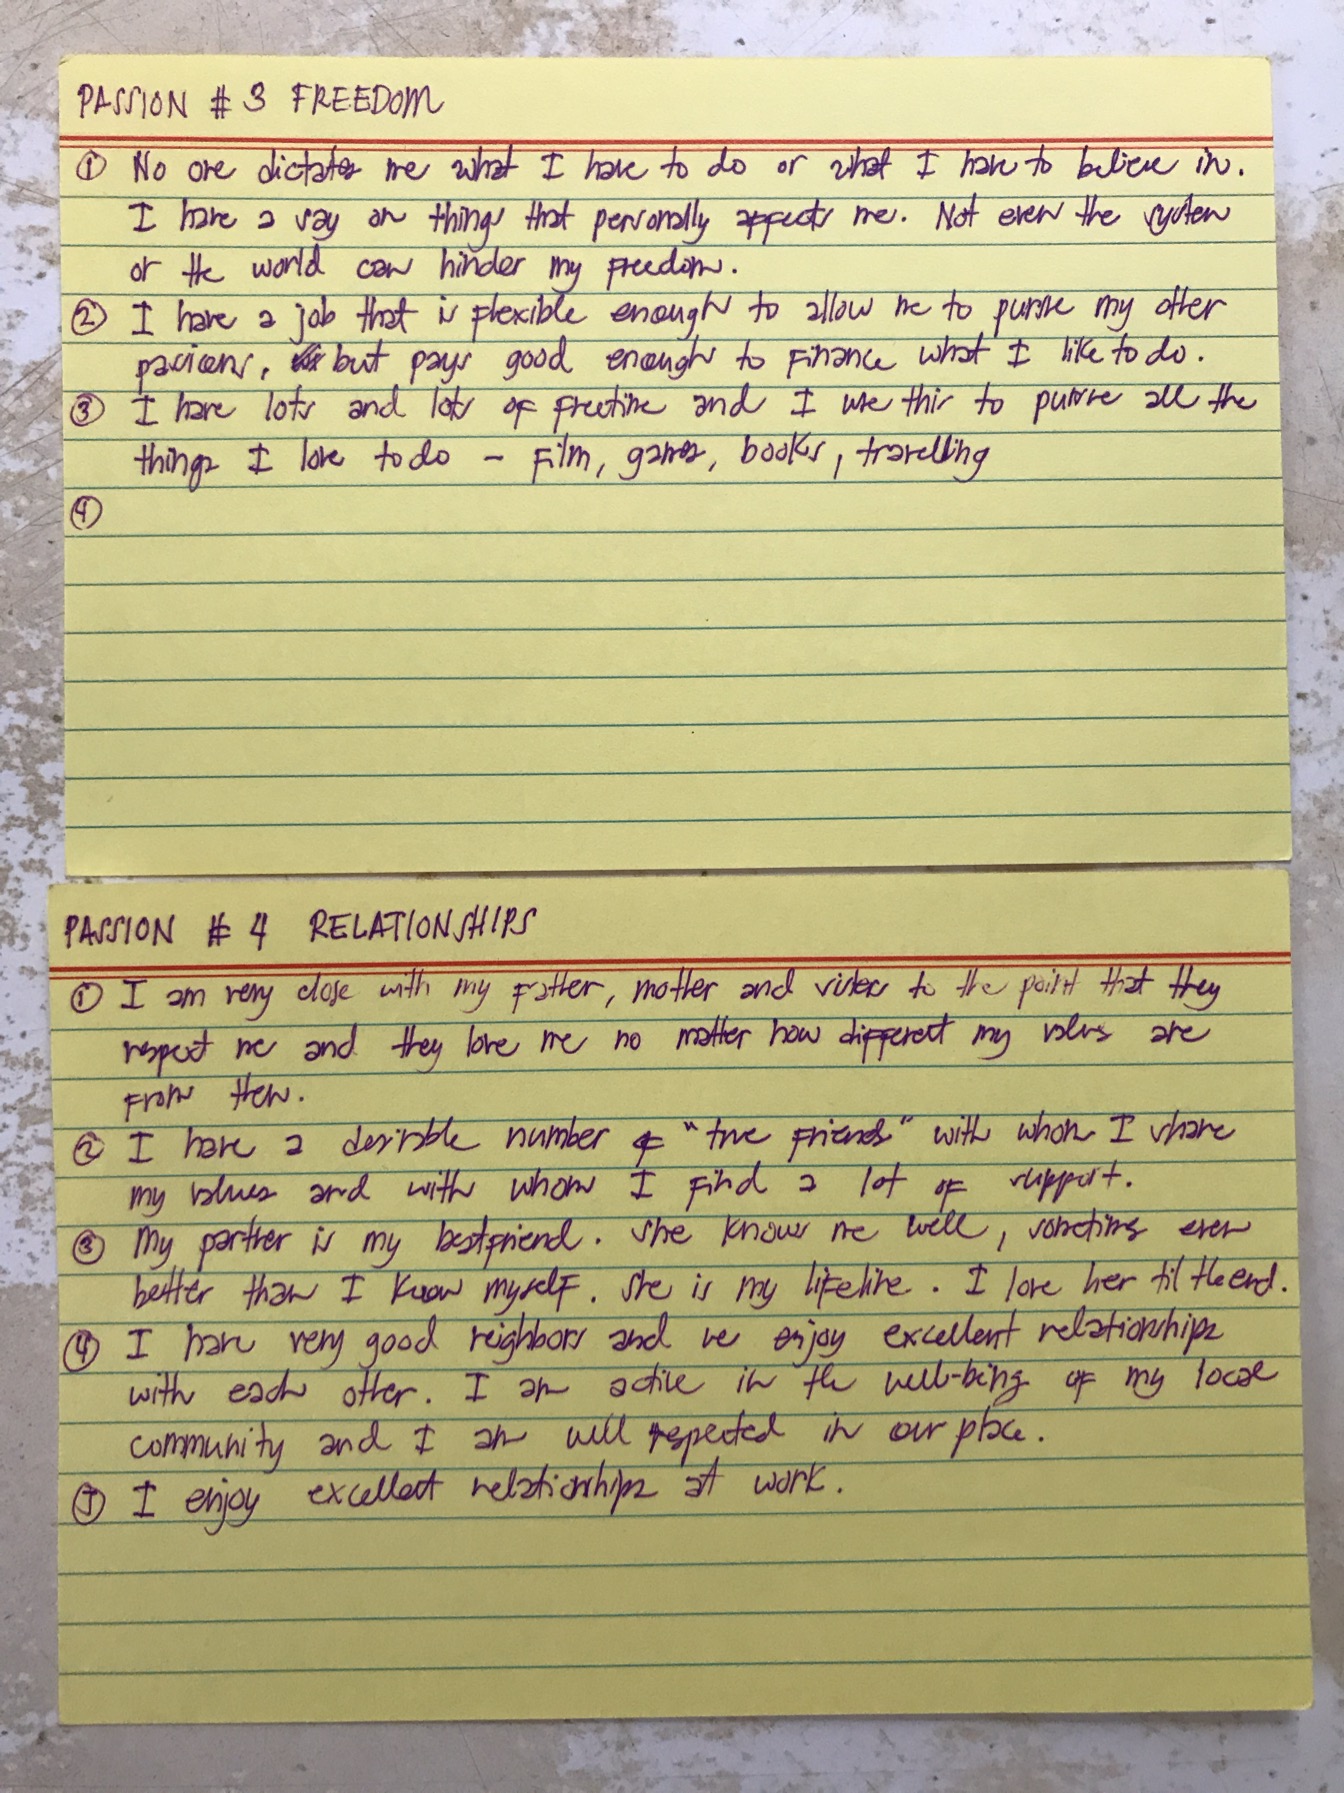 PASSION # 3 FREEDOM
① No one dictates me what I have to do or what I have to believe in.
I have a say on things that personally affects me. Not even the system
or the world can hinder my freedom.
② I have a job that is flexible enough to allow me to pursue my other
passions, but pays good enough to finance what I like to do.
③ I have lots and lots of freetime and I use this to pursue all the
things I love to do - film, games, books, travelling
④
PASSION # 4 RELATIONSHIPS
① I am very close with my father, mother and sisters to the point that they
respect me and they love me no matter how different my values are
from them.
② I have a desirable number of "true friends" with whom I share
my values and with whom I find a lot of support.
③ My partner is my bestfriend. She knows me well, sometimes even
better than I know myself. She is my lifeline. I love her til the end.
④ I have very good neighbors and we enjoy excellent relationships
with each other. I am active in the well-being of my local
community and I am well respected in our place.
⑤ I enjoy excellent relationships at work.